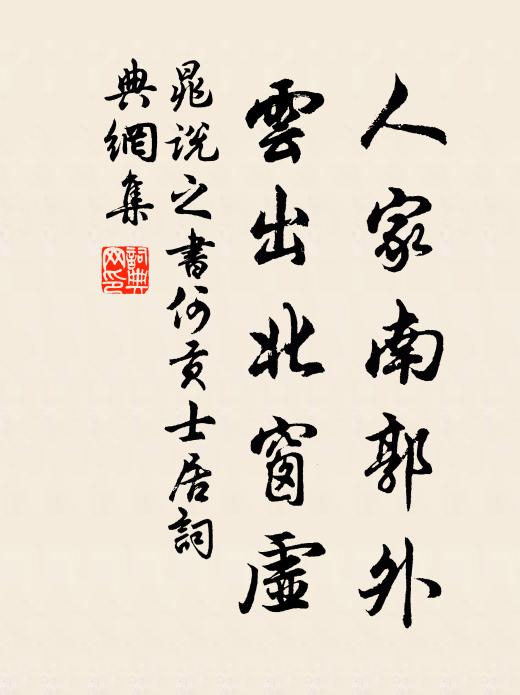 人家南郭外
雲出北窗虛
晁說之書何貢士居詞
典網集
詞典
网印